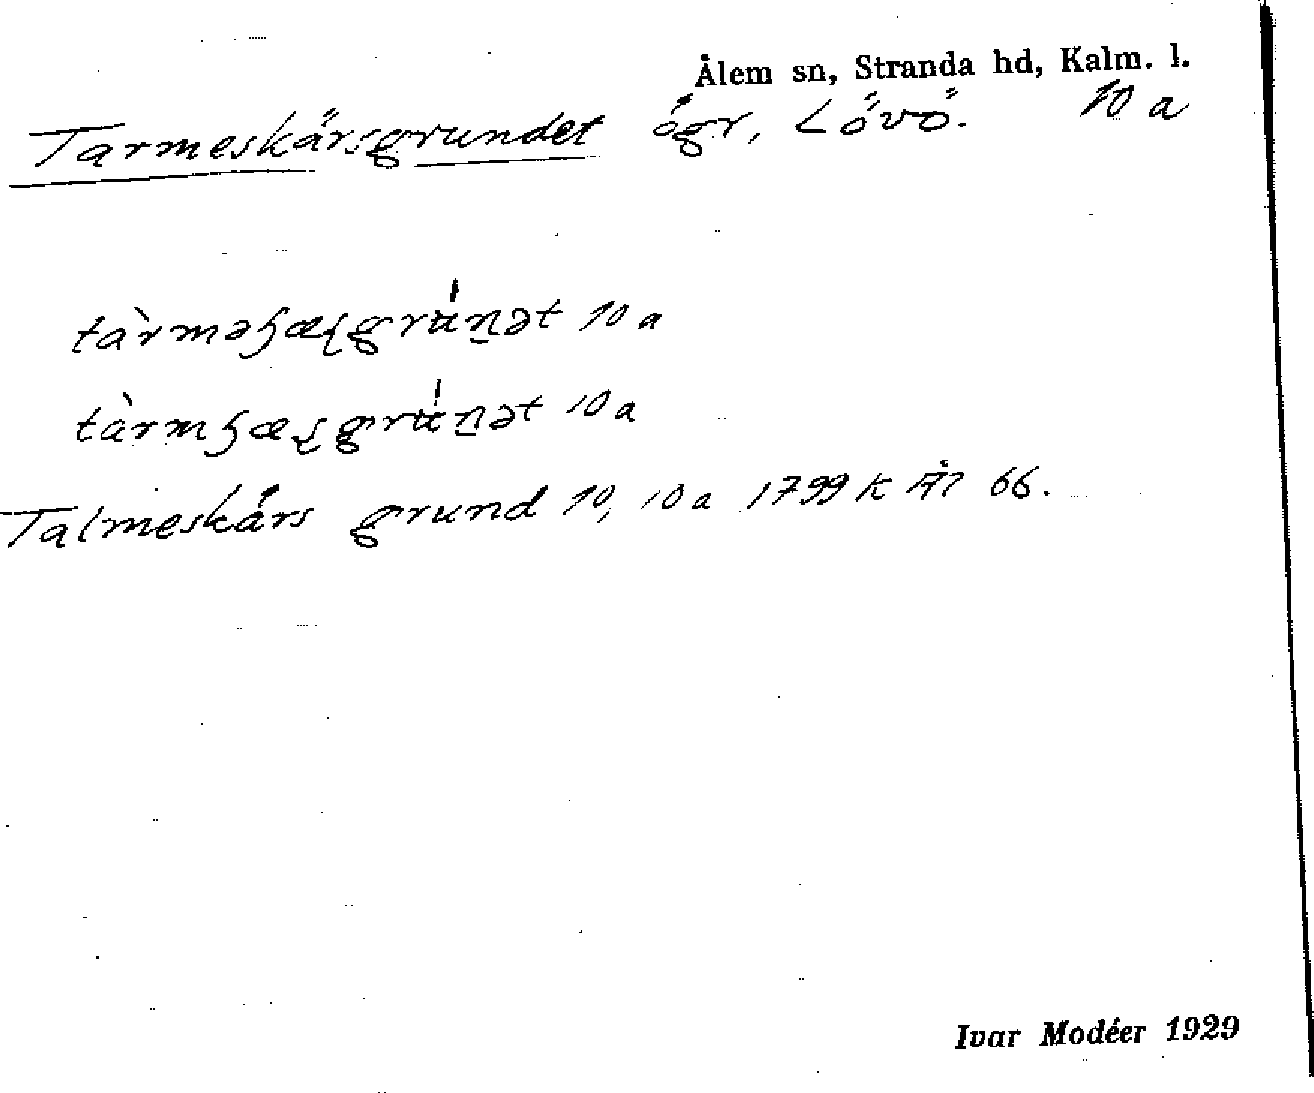 Ålem sn, Stranda hd, Kalm. l.
Tarmeskärsgrundet ögr, Lövö. 10 a
tàrməɧæʂgrún̠ət 10 a
tàrmɧæʂgrún̠ət 10 a
Talmeskärs grund 10, 10 a 1799 k Än 66.
Ivar Modéer 1929